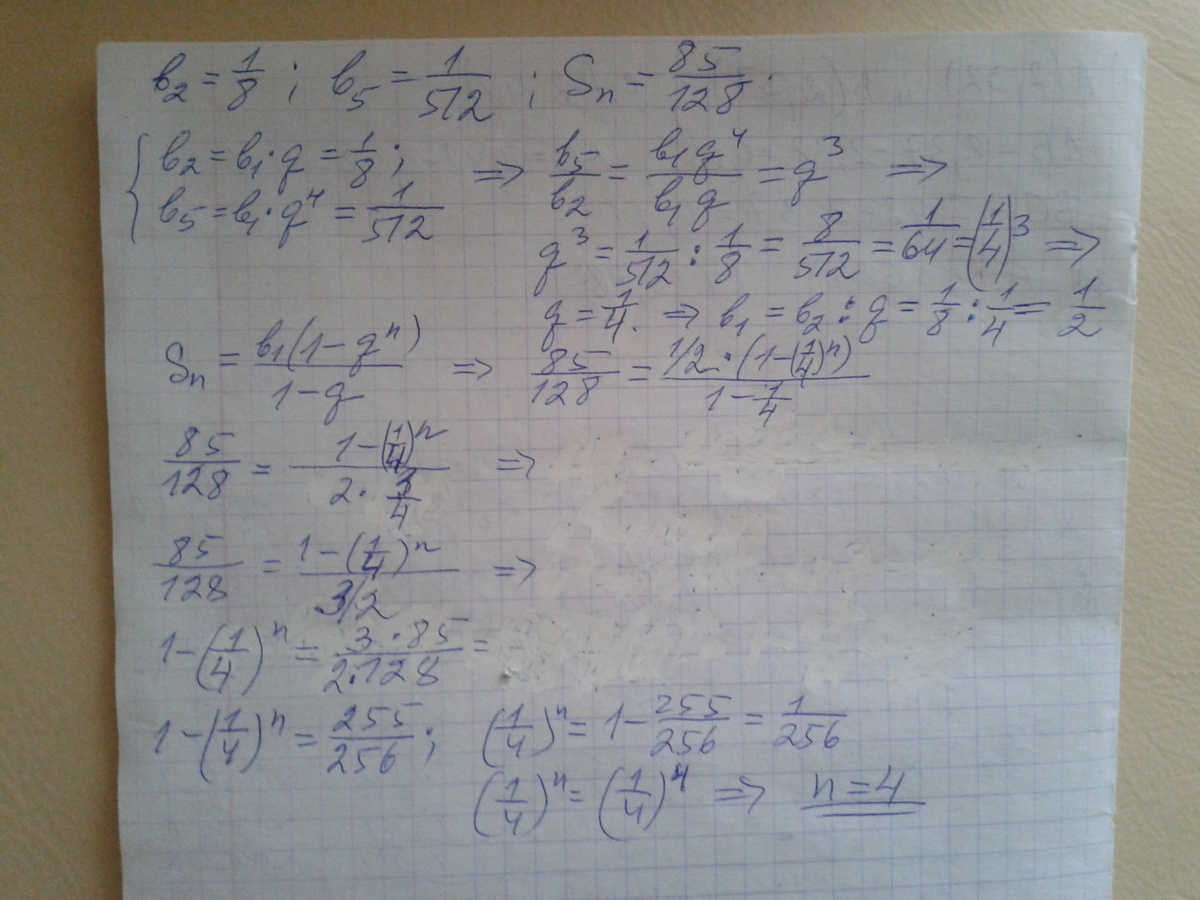 b₂ = 1/8 ; b₅ = 1/512 ; Sₙ = 85/128 .
{ b₂ = b₁·q = 1/8 ; => b₅/b₂ = b₁q⁴/b₁q = q³ =>
b₅ = b₁·q⁴ = 1/512
q³ = 1/512 : 1/8 = 8/512 = 1/64 = (1/4)³ =>
q = 1/4. => b₁ = b₂ : q = 1/8 : 1/4 = 1/2
Sₙ = b₁(1-qⁿ)/1-q => 85/128 = 1/2·(1-(1/4)ⁿ)/1-1/4
85/128 = 1-(1/4)ⁿ/2·3/4 =>
85/128 = 1-(1/4)ⁿ/3/2 =>
1-(1/4)ⁿ = 3·85/2·128 =
1-(1/4)ⁿ = 255/256 ; (1/4)ⁿ = 1-255/256 = 1/256
(1/4)ⁿ = (1/4)⁴ => n=4